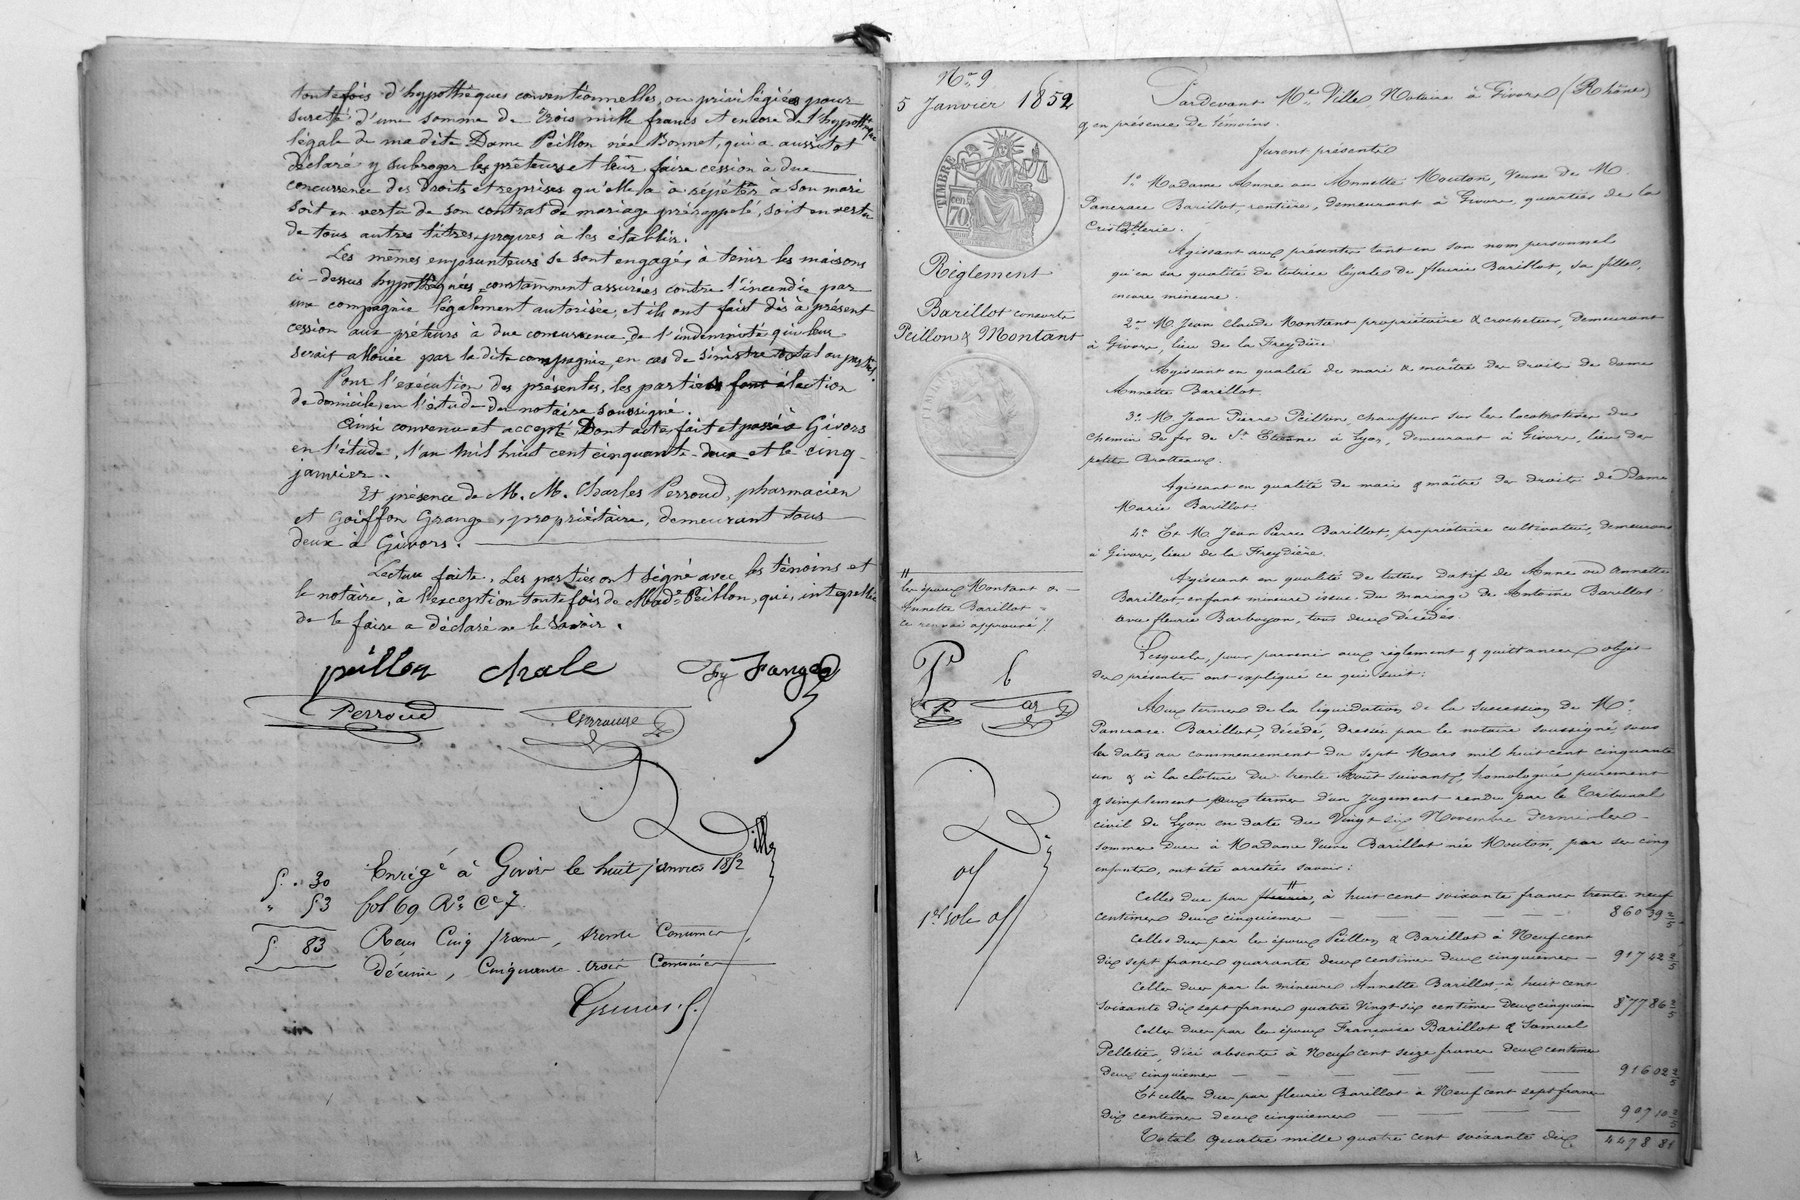 toutefois d'hypothèques conventionnelles, ou privilégiées pour
sureté d'une somme de trois mille francs et encore de l'hypothèque
légale de madite Dame Peillon née Bonnet, qui a aussitot
déclaré y subroger les prêteurs et leur faire cession à due
concurrence des droits et reprises qu'elle a à répéter à son mari
soit en vertu de son contrat de mariage prérappelé, soit en vertu
de tous autres titres propres à les établir.
Les mêmes emprunteurs se sont engagés à tenir les maisons
ci-dessus hypothéquées constamment assurées contre l'incendie par
une compagnie légalement autorisée, et ils ont fait dès à présent
cession aux prêteurs à due concurrence de l'indemnité qui leur
serait allouée par ladite compagnie, en cas de sinistre total ou partiel.
Pour l'exécution des présentes, les parties font élection
de domicile, en l'étude du notaire soussigné.
Ainsi convenu et accepté, Dont acte, fait et passé à Givors
en l'étude, l'an mil huit cent cinquante-deux et le cinq
janvier.
Et présence de M. M. Charles Perroud, pharmacien
et Goiffon Grange, propriétaire, demeurant tous
deux à Givors.
Lecture faite, les parties ont signé avec les témoins et
le notaire, à l'exception toutefois de Made Peillon, qui, interpellée
de le faire a déclaré ne le savoir.
peillon chale
Perroud
Ville
Enregé à Givors le huit janvier 1852
5 . 30
fol 69 Ro Ce 7.
" 53
Reçu Cinq francs, trente Centimes,
5 83
décime, Cinquante trois Centimes
No 9
5 Janvier 1852
TIMBRE
70
Règlement
Barillot consorts
Peillon & Montant
les époux Montant &
Annette Barillot
ce renvoi approuvé
Pardevant Me Ville Notaire à Givors (Rhône)
& en présence de témoins.
furent présents
1o Madame Anne ou Annette Mouton, veuve de M.
Pancrace Barillot, rentière, demeurant à Givors, quartier de la
Cristallerie.
Agissant aux présentes tant en son nom personnel
qu'en sa qualité de tutrice légale de fleurie Barillot, sa fille,
encore mineure.
2o M. Jean Claude Montant propriétaire & crocheteur, demeurant
à Givors, lieu de la Freydière
Agissant en qualité de mari & maître des droits de dame
Annette Barillot
3o M. Jean Pierre Peillon, chauffeur sur les locomotives du
chemin de fer de St Etienne à Lyon, demeurant à Givors, lieu des
petits Brotteaux.
Agissant en qualité de mari & maître des droits de Dame
Marie Barillot.
4o Et M. Jean Pierre Barillot, propriétaire cultivateur, demeurant
à Givors, lieu de la Freydière.
Agissant en qualité de tuteur datif de Anne ou Annette
Barillot, enfant mineure issue du mariage de Antoine Barillot
avec fleurie Barboyon, tous deux décédés.
Lesquels, pour parvenir aux règlement & quittances objet
des présentes ont expliqué ce qui suit:
Aux termes de la liquidation de la succession de Mr
Pancrace Barillot, décédé, dressée par le notaire soussigné, sous
les dates au commencement du sept Mars mil huit cent cinquante
un & à la clôture du trente Août suivant, homologuée purement
& simplement aux termes d'un jugement rendu par le Tribunal
civil de Lyon en date du Vingt six Novembre dernier les
sommes dues à Madame Veuve Barillot née Mouton, par ses cinq
enfants, ont été arrêtées savoir:
Celles dues par à huit cent soixante francs trente neuf
centimes deux cinquièmes — 860 39 2/5
Celles dues par les époux Peillon & Barillot à Neuf cent
dix sept francs quarante deux centimes deux cinquièmes — 917 42 2/5
Celles dues par la mineure Annette Barillot à huit cent
soixante dix sept francs quatre Vingt six centimes deux cinquièmes 877 86 2/5
Celles dues par les époux Françoise Barillot & Samuel
Pelletié, d'ici absents à Neuf cent seize francs deux centimes
deux cinquièmes — 916 02 2/5
Et celles dues par fleurie Barillot à Neuf cent sept francs
dix centimes deux cinquièmes — 907 10 2/5
Total quatre mille quatre cent soixante dix 4478 81